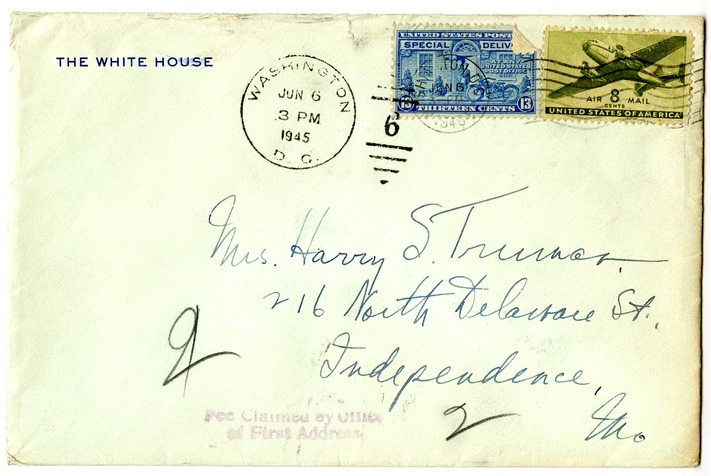 THE WHITE HOUSE
WASHINGTON
JUN 6
3 PM
1945
D. C.
6
UNITED STATES POST
SPECIAL DELIV
AT ANY UNITED STATES
POST OFFICE
13 THIRTEEN CENTS 13
JUN 6
1945
AIR 8 MAIL
CENTS
UNITED STATES OF AMERICA
Mrs. Harry S. Truman
216 North Delaware St.
Independence,
Mo
2
2
Fee Claimed by Office
of First Address